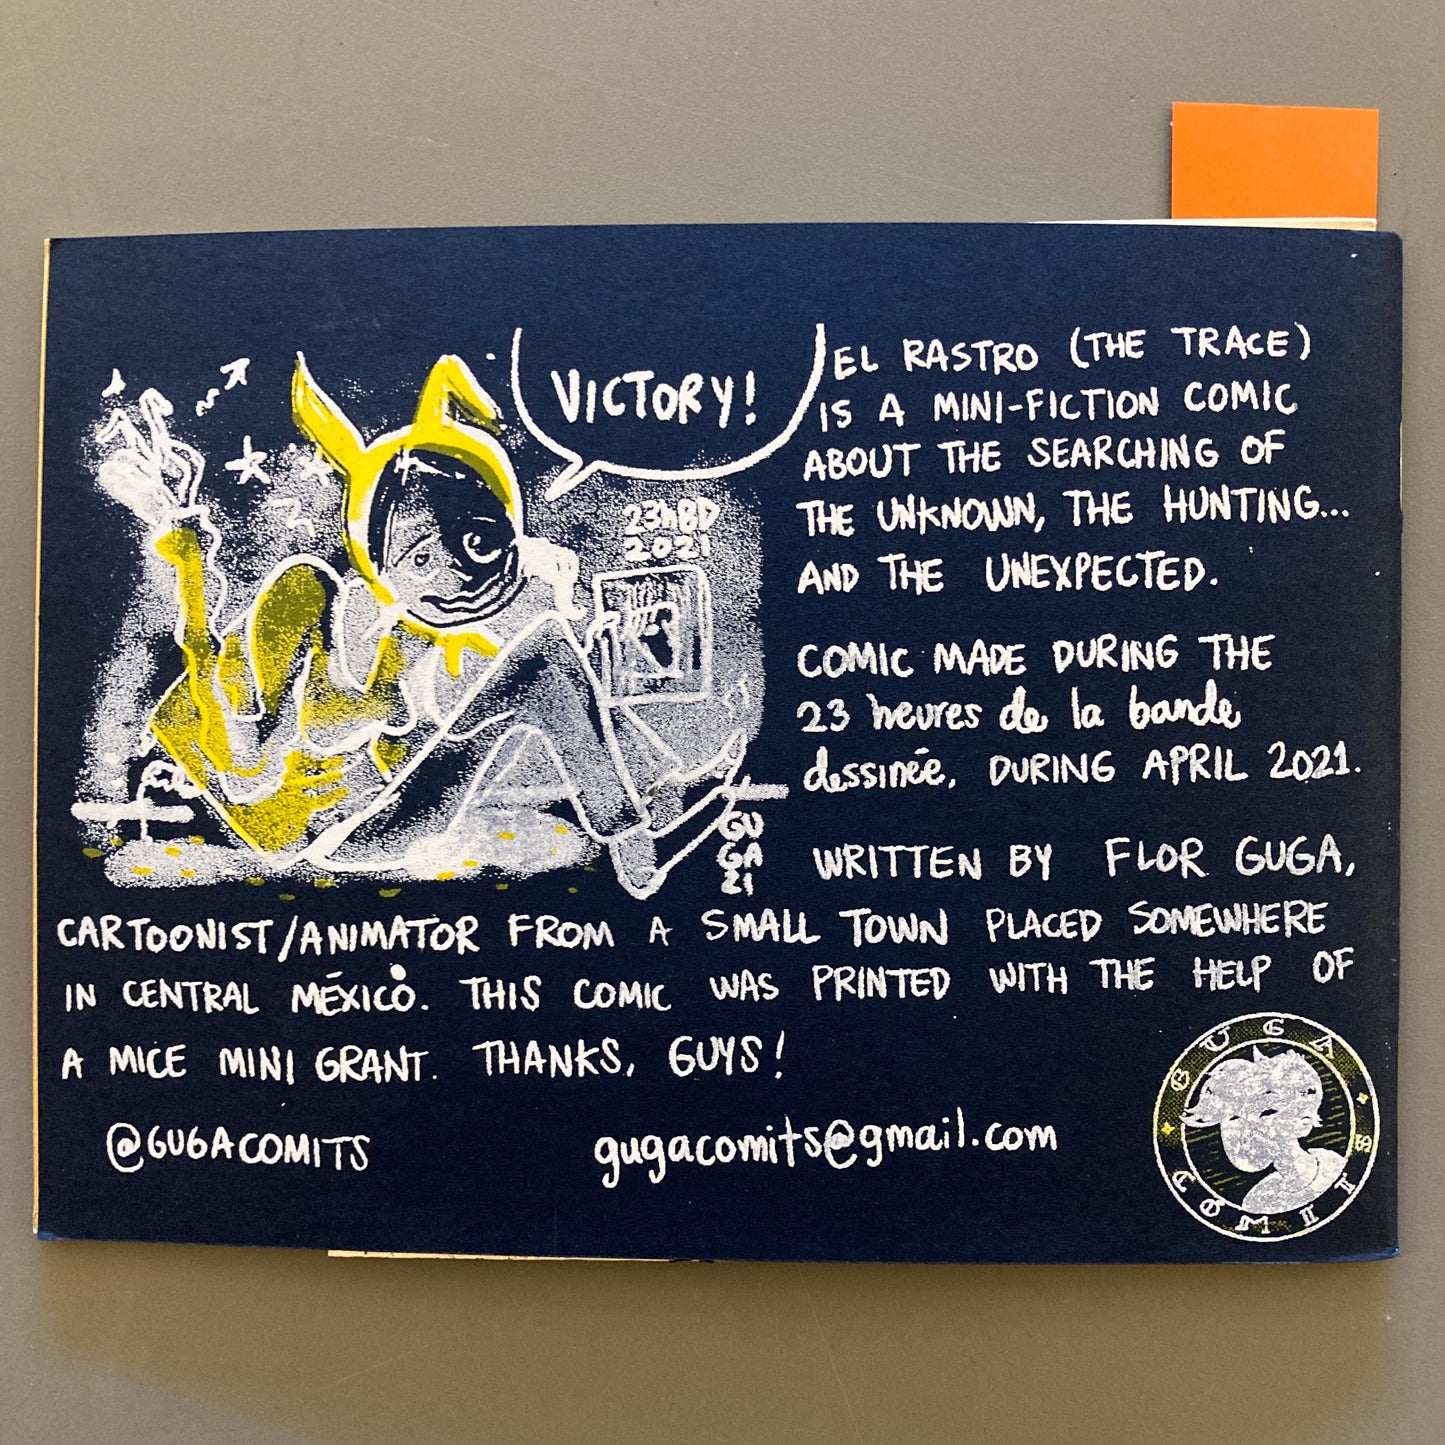 VICTORY!
23hBD
2021
GU
GA
21
EL RASTRO (THE TRACE)
IS A MINI-FICTION COMIC
ABOUT THE SEARCHING OF
THE UNKNOWN, THE HUNTING...
AND THE UNEXPECTED.
COMIC MADE DURING THE
23 heures de la bande
dessinée, DURING APRIL 2021.
WRITTEN BY FLOR GUGA,
CARTOONIST/ANIMATOR FROM A SMALL TOWN PLACED SOMEWHERE
IN CENTRAL MÉXICO. THIS COMIC WAS PRINTED WITH THE HELP OF
A MICE MINI GRANT. THANKS, GUYS!
@GUGACOMITS
gugacomits@gmail.com
GUGA
COMITS